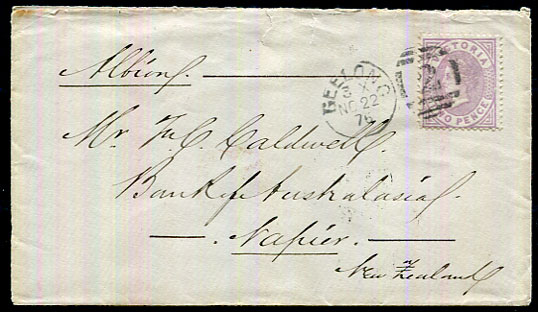 VICTORIA
TWO PENCE
GEELONG
3 X
NO 22
76
Albion
Mr. F. C. Caldwell.
Bank of Australasia
Napier.
New Zealand